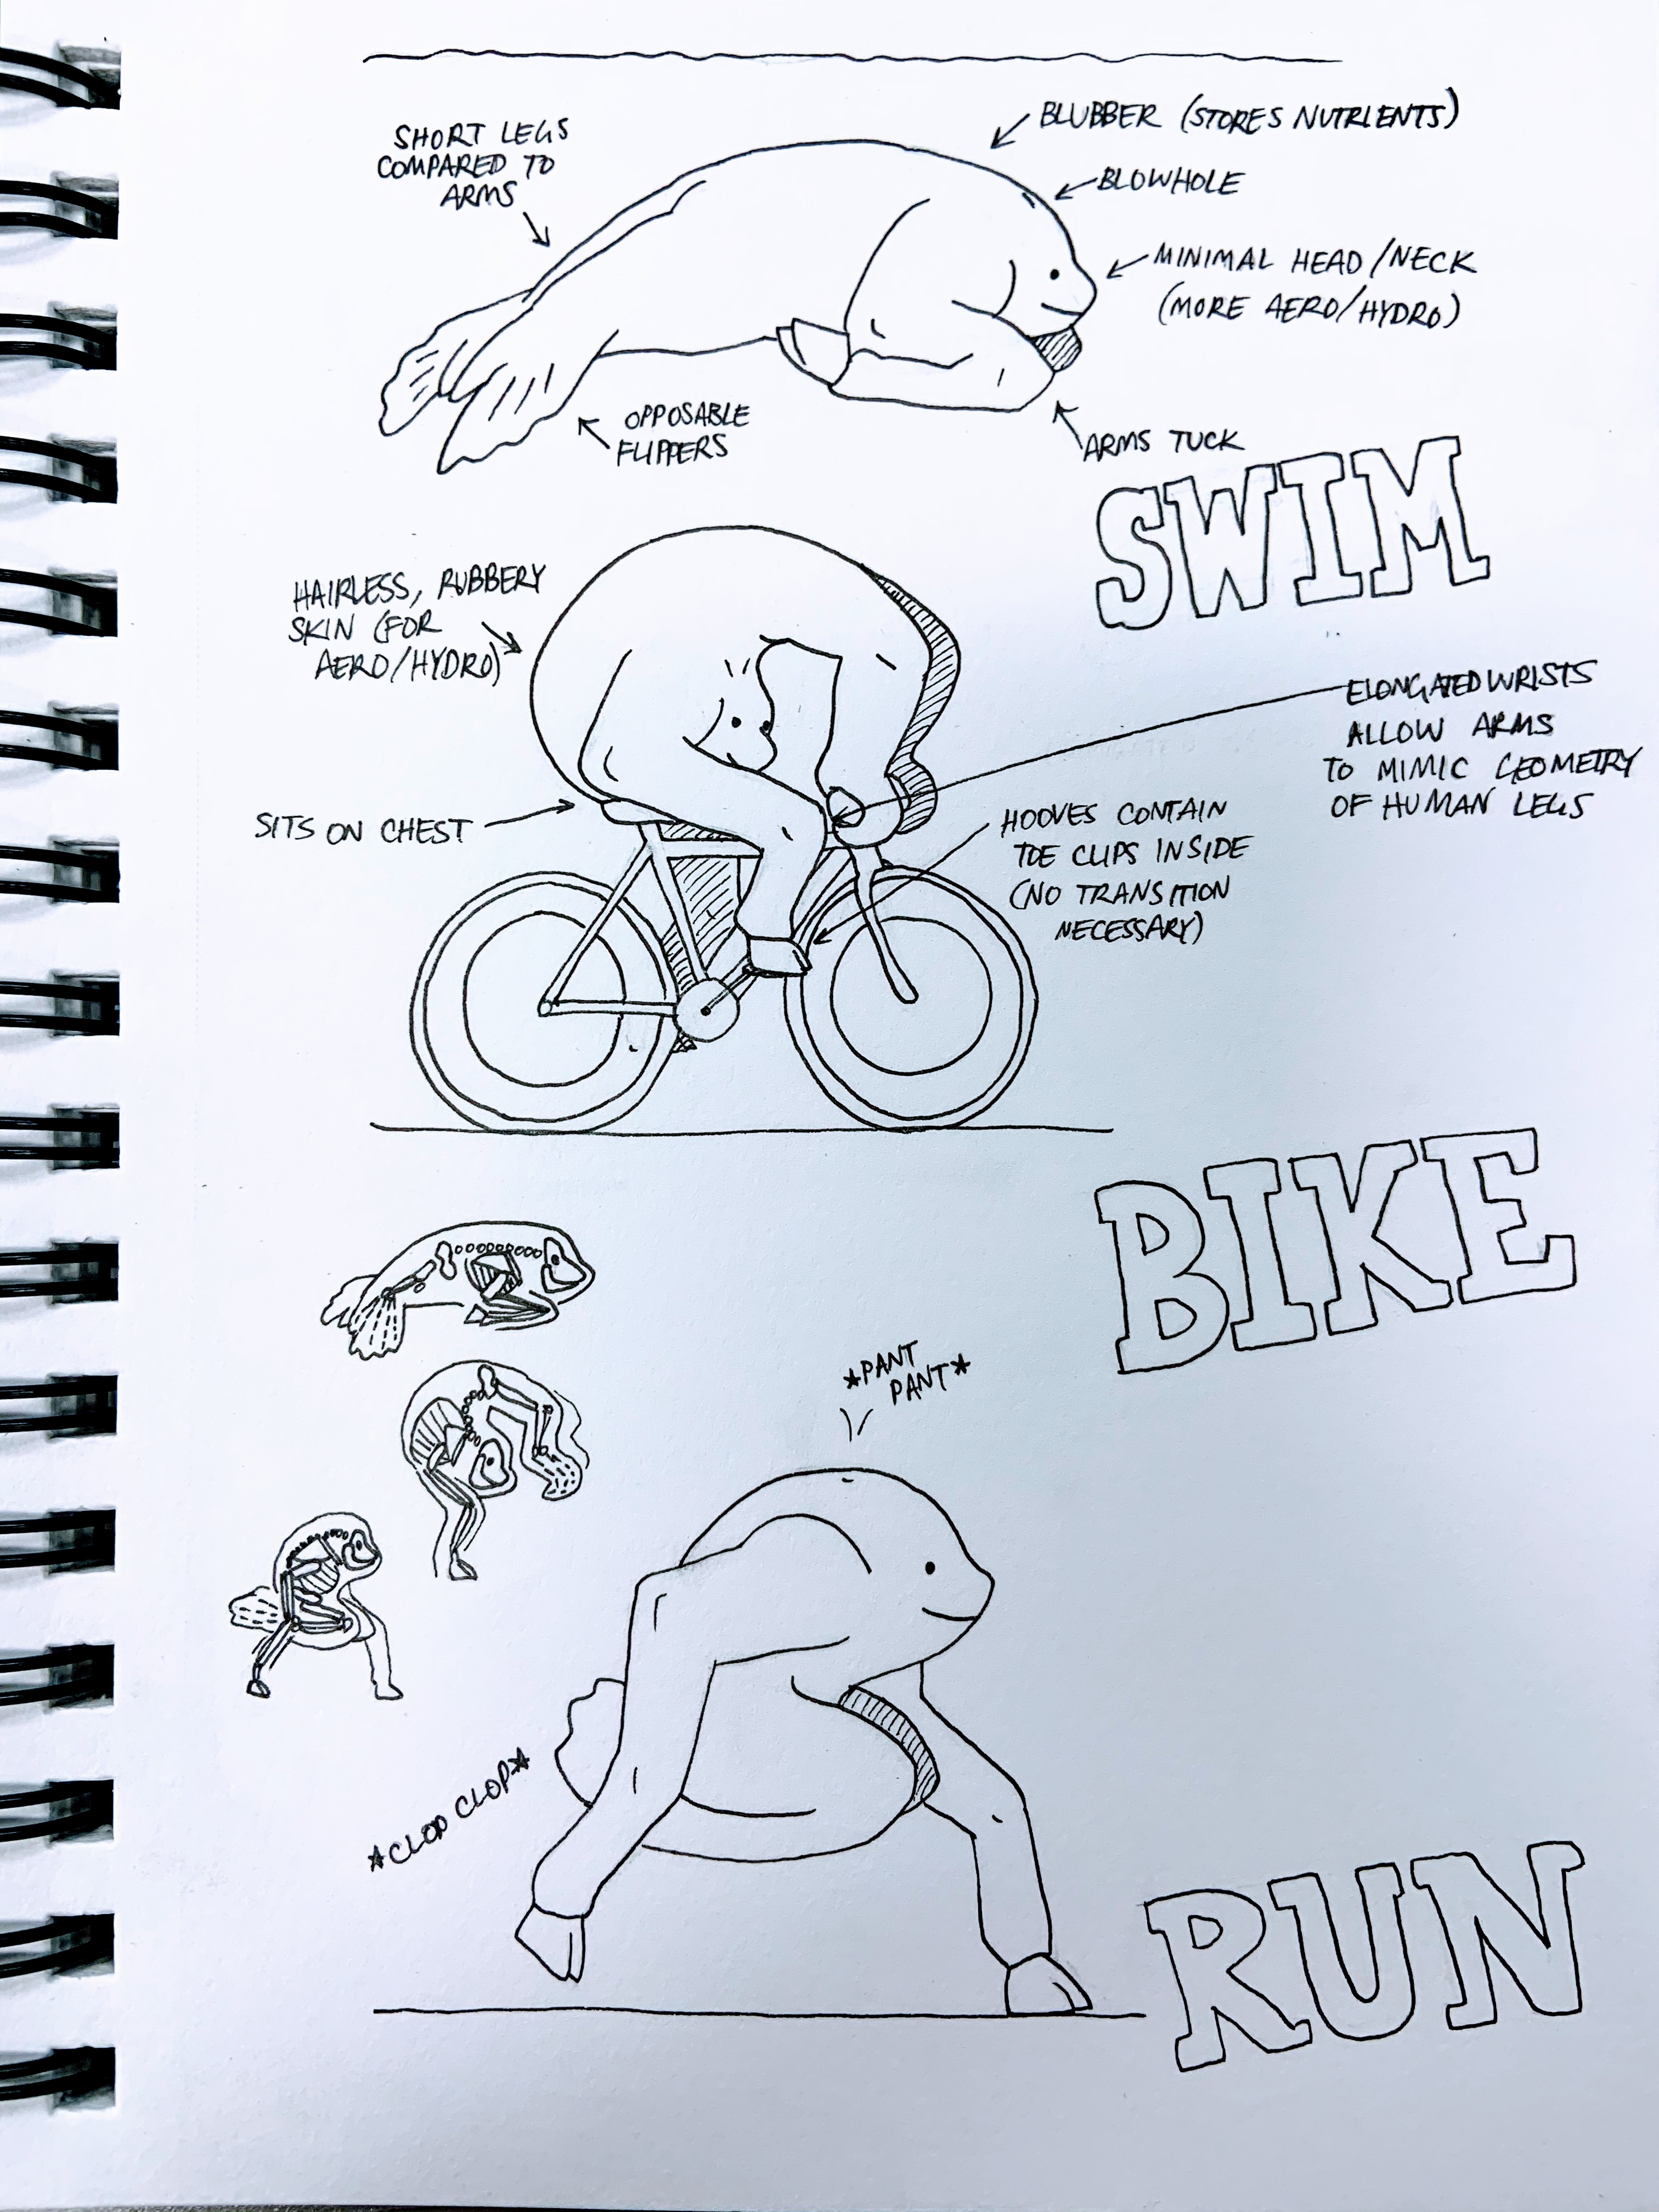 SHORT LEGS
COMPARED TO
ARMS
BLUBBER (STORES NUTRIENTS)
BLOWHOLE
MINIMAL HEAD/NECK
(MORE AERO/HYDRO)
OPPOSABLE
FLIPPERS
ARMS TUCK
SWIM
HAIRLESS, RUBBERY
SKIN (FOR
AERO/HYDRO)
ELONGATED WRISTS
ALLOW ARMS
TO MIMIC GEOMETRY
OF HUMAN LEGS
SITS ON CHEST
HOOVES CONTAIN
TOE CLIPS INSIDE
(NO TRANSITION
NECESSARY)
BIKE
*PANT
PANT*
*CLOP CLOP*
RUN